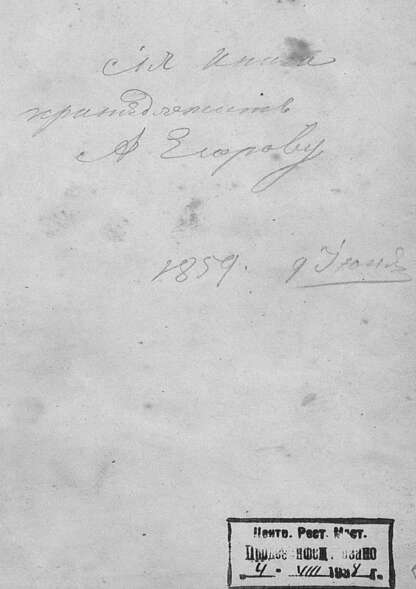 сія книга
принадлежитъ
А Егорову
1859. 9 Іюня
Центр. Рест. Маст.
Продезинфицировано
"4" VIII 1938 г.